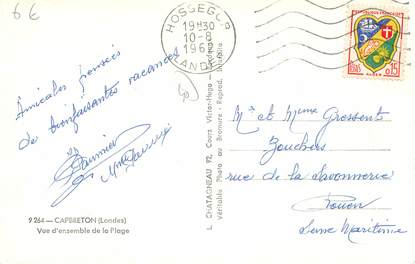 6 €
HOSSEGOR
19H30
10-8
196
LANDES
REPUBLIQUE FRANÇAISE
POSTES
0,15
ALGER
Amicales pensées
de bienfaisantes vacances
9 264 — CAPBRETON (Landes)
Vue d'ensemble de la Plage
L. CHATAGNEAU 92, Cours Victor-Hugo
Véritable Photo au Bromure - Reprod. interdite
Mr et Mme Grossent
Bouchers
rue de la Savonnerie
Rouen
Seine Maritime